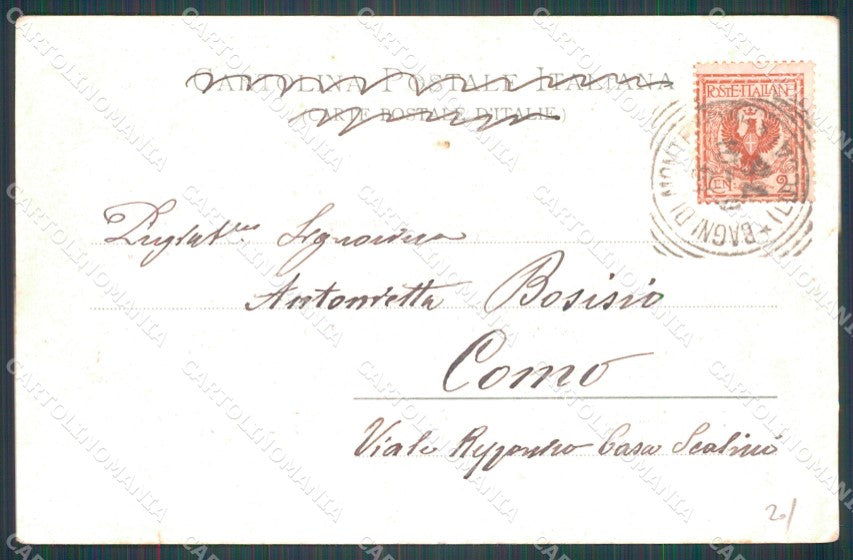 CARTOLINA POSTALE ITALIANA
(CARTE POSTALE D'ITALIE)
POSTE·ITALIANE
CEN 2
BAGNI DI MONTE
Signorina
Antonietta Bosisio
Como
Viale Casa Scalini
20/
CARTOLINOMANIA